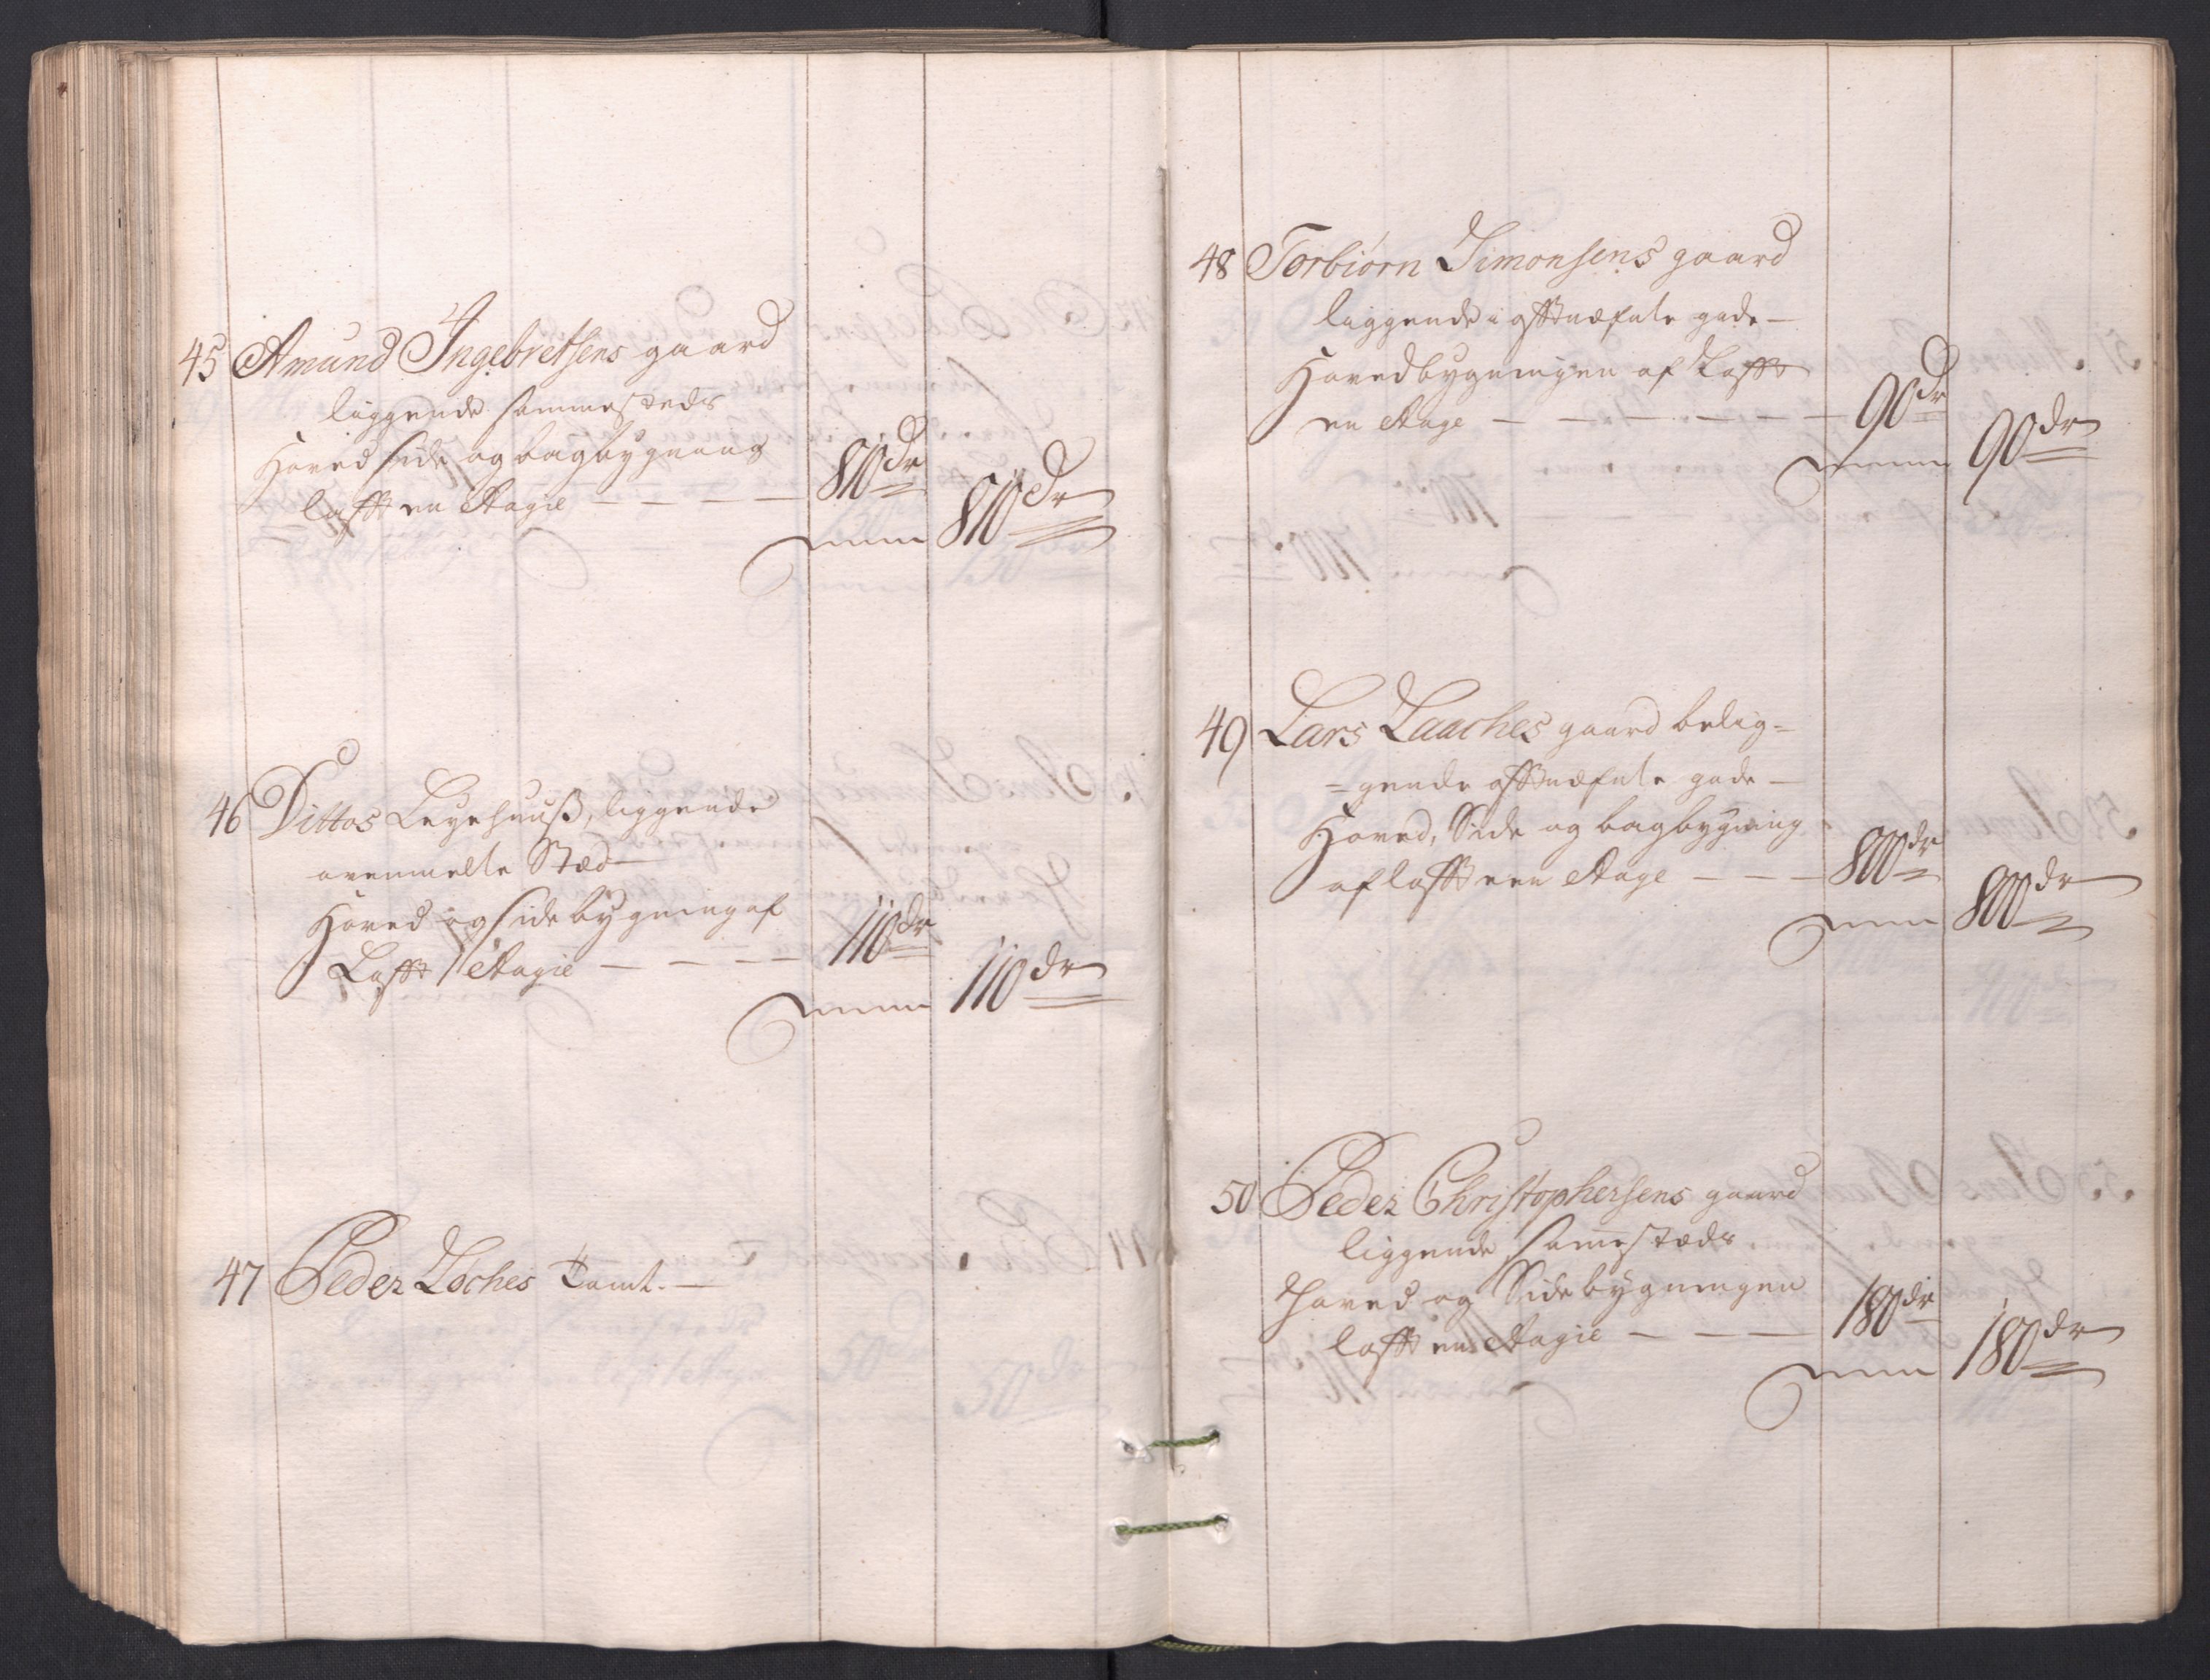 45 Amund Ingebretsens gaard
liggende sammesteds
Hoved side og bagbygning
lofft en Etagie — — — — 80 dr
80 dr
46 Dittos Leyehuuß, liggende
ovenmelte Stæd —
Hoved og side bygning af
Lofft 1 Etagie — — — — 110 dr
110 dr
47 Peder Loches Tomt. —
48 Torbiørn Simonsens gaard
liggende i offtnæfnte gade —
Hovedbygningen af Lofft
en Etage — — — — — — 90 dr
90 dr
49 Lars Laaches gaard belig=
=gende offtnæfnte gade —
Hoved, Side og bagbygning
af lofft een Etage — — — 800 dr
800 dr
50 Peder Christophersens gaard
liggende samestæds
Hoved og Side bygningen
lofft en Etagie — — — 180 dr
180 dr